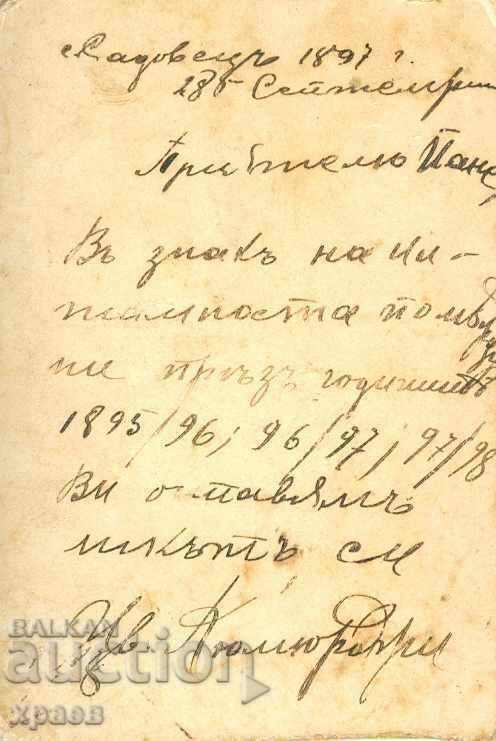 с. Садовецъ 1897 г.
28й Септемврий
Приятелю Пане,
Въ знакъ на ин-
тимността по между
ни прѣзъ годинитѣ
1895/96; 96/97, 97/98
Ви оставямъ
ликътъ си
Цв.
BALKAN
auction
храев